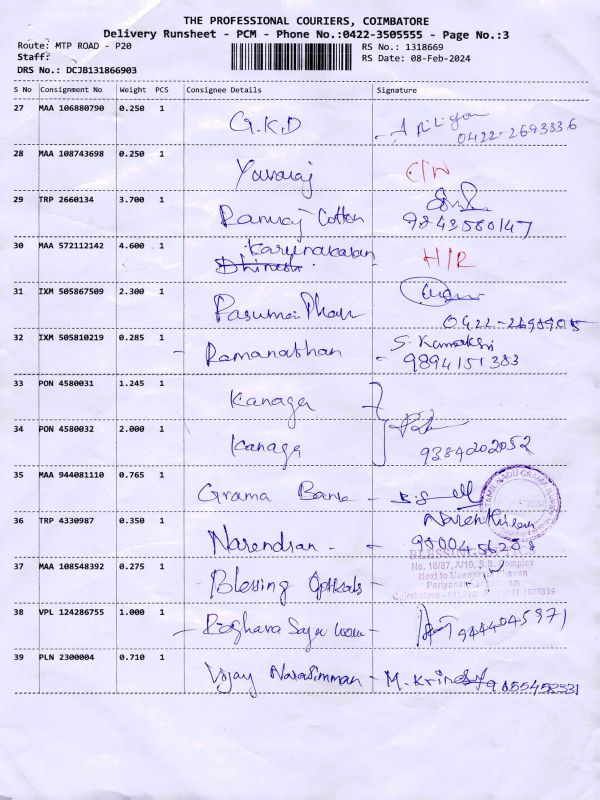 THE PROFESSIONAL COURIERS, COIMBATORE
Delivery Runsheet - PCM - Phone No.:0422-3505555 - Page No.:3
Route: MTP ROAD - P20
RS No.: 1318669
Staff:
RS Date: 08-Feb-2024
DRS No.: DCJB131866903
S No Consignment No Weight PCS Consignee Details Signature
27 MAA 106880790 0.250 1 G.K.D
0422-2693336
28 MAA 108743698 0.250 1 Yuvaraj
29 TRP 2660134 3.700 1 Ramraj Cotton 9843580147
30 MAA 572112142 4.600 1 Karunakaran H/R
Dhinesh
31 IXM 505867509 2.300 1
32 IXM 505810219 0.285 1 Ramanathan S. Kamakshi
9894151383
33 PON 4580031 1.245 1 Kanaga
34 PON 4580032 2.000 1 Kanaga 9384202052
35 MAA 944081110 0.765 1 Grama Bank
TAMIL NADU GRAMA BANK
36 TRP 4330987 0.350 1 Narendran
BLESSING
37 MAA 108548392 0.275 1 Blessing Opticals
No. 16/87, A/10, S.B. Complex
Next to
Coimbatore
38 VPL 124286755 1.000 1 9444045971
39 PLN 2300004 0.710 1 Vijay Narasimman - M.